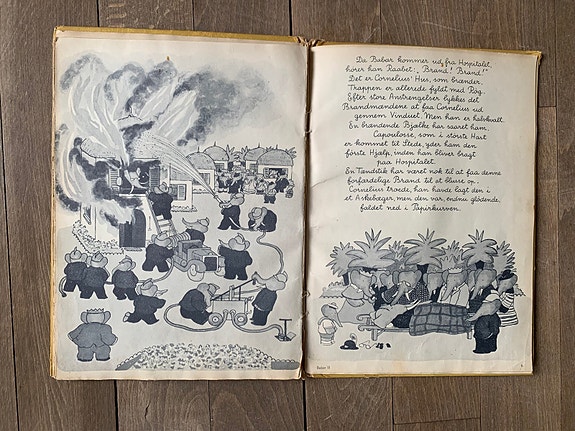 Da Babar kommer ud fra Hospitalet,
hører han Raabet: „Brand! Brand!"
Det er Cornelius' Hus, som brænder.
Trappen er allerede fyldt med Røg.
Efter store Anstrengelser lykkes det
Brandmændene at faa Cornelius ud
gennem Vinduet. Men han er halvkvalt.
En brændende Bjælke har saaret ham.
Capoulosse, som i største Hast
er kommet til Stede, yder ham den
første Hjælp, inden han bliver bragt
paa Hospitalet.
En Tændstik har været nok til at faa denne
forfærdelige Brand til at blusse op.
Cornelius troede, han havde lagt den i
et Askebæger, men den var, endnu glødende,
faldet ned i Papirkurven.
Babar II